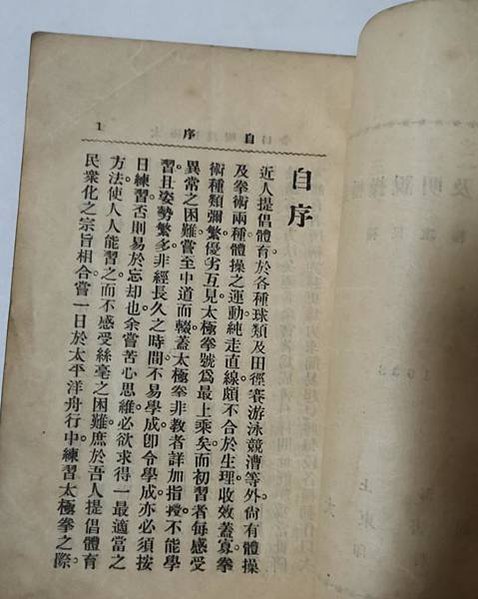 自序
1
自序
近人提倡體育於各種球類及田徑賽游泳競漕等外尙有體操
及拳術兩種體操之運動純走直線頗不合於生理收效蓋寡拳
術種類彌繁優劣互見太極拳號爲最上乘矣而初習者每感受
異常之困難嘗至中道而輟蓋太極拳非教者詳加指授不能學
習且姿勢繁多非經長久之時間不易學成卽令學成亦必須按
日練習否則易於忘却也余嘗苦心思維必欲求得一最適當之
方法使人人能習之而不感受絲毫之困難庶於吾人提倡體育
民衆化之宗旨相合嘗一日於太平洋舟行中練習太極拳之際